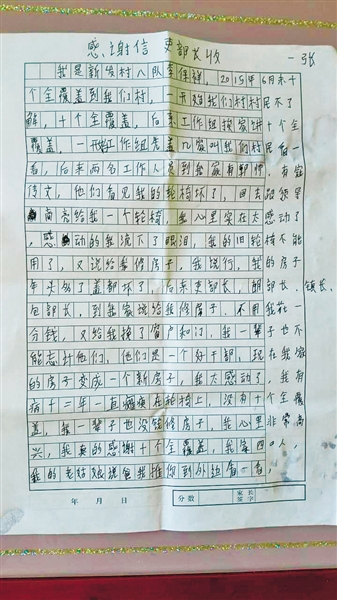 感谢信 吏部长收 一张
我是新发村八队李保群，2015年6月末十
个全覆盖到我们村，一开始我们村村民不了
解，十个全覆盖，后来工作组挨家讲十个全
覆盖，一开始工作组先盖几家叫我们村民看一
看，后来两名工作人员到我家有郭帅，有宣
传文，他们看见我的轮椅坏了，回去跟领导
商亮给我一个轮椅，我心里实在太感动了
，感动的我流下了眼泪，我的旧轮椅不能
用了，又说给我修房子，我说行，我的房子
年头多了盖都坏了，后来吏部长，胡部长，镇长，
包部长，到我家说给我修房子，不用我花一
分钱，又给我换了窗户和门，我一辈子也不
能忘计他们，他们是一个好干部，现在我家
的房子变成一个新房子，我太感动了，我有
病十二年一直瘫痪在轮椅上，没有十个全覆
盖，我一辈子也没钱修房子，我心里非常高
兴，我真的感谢十个全覆盖，我家四口人，
我的老姑娘说爸我推你到外边看一看，
年 月 日 分数 家长签字